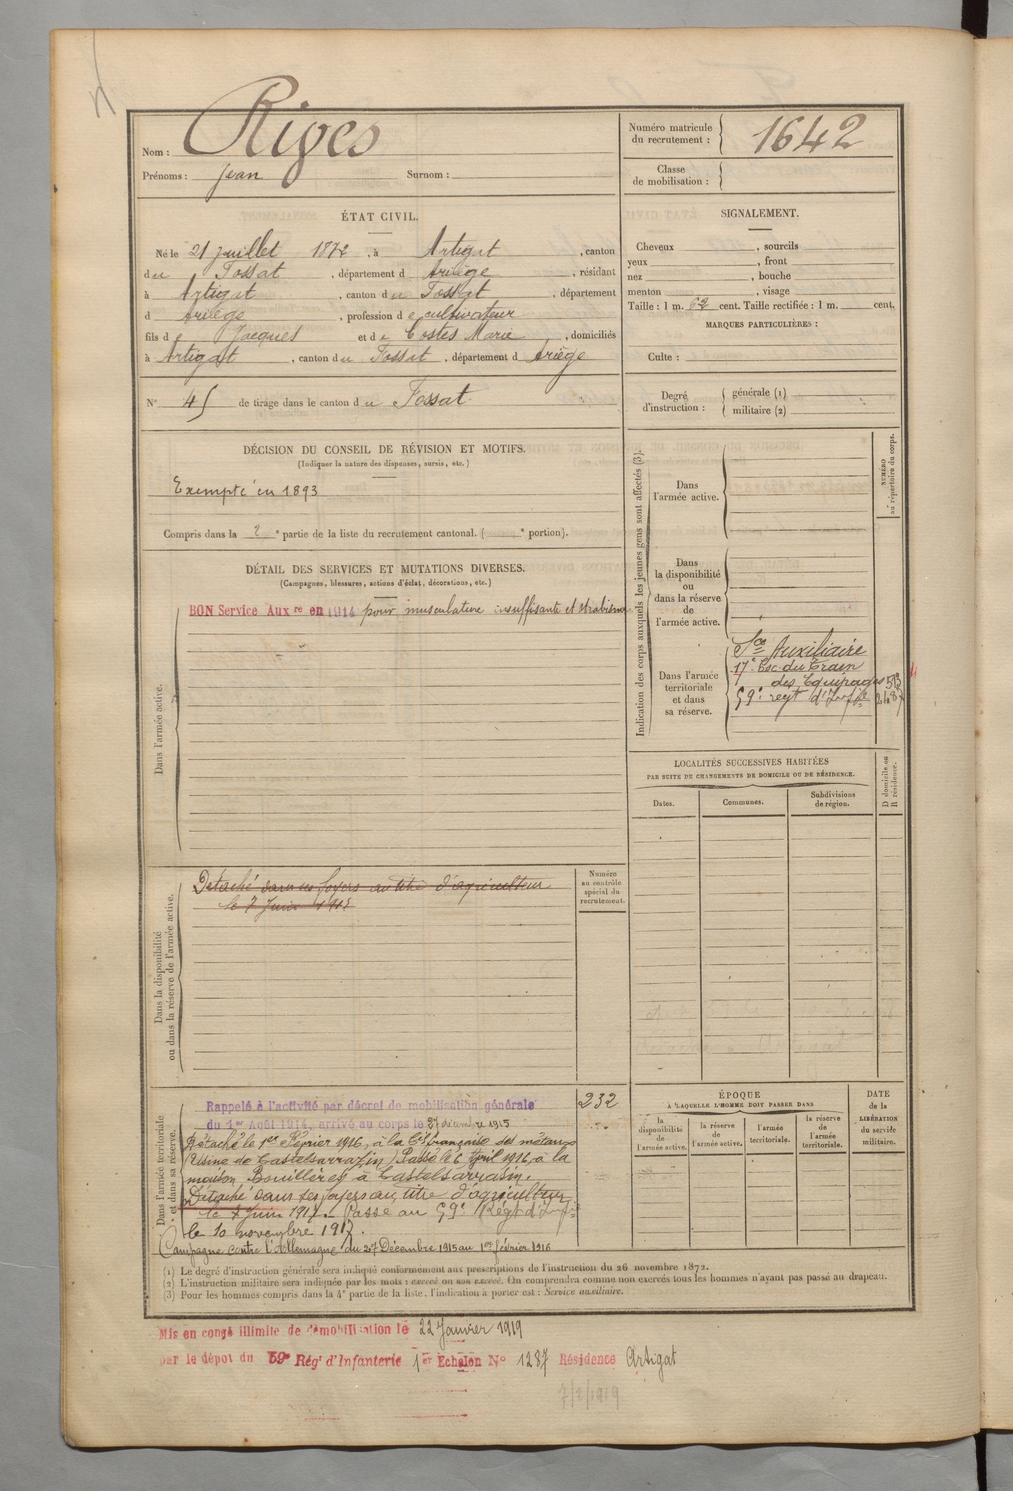 Nom : Rives
Prénoms : Jean Surnom :
Numéro matricule du recrutement : 1642
Classe de mobilisation :
ÉTAT CIVIL.
Né le 21 juillet 1872, à Artigat, canton
du Fossat, département d Ariège, résidant
à Artigat, canton du Fossat, département
d Ariège, profession de cultivateur
fils de Jacques et de Costes Marie, domiciliés
à Artigat, canton du Fossat, département d Ariège
N° 45 de tirage dans le canton du Fossat
SIGNALEMENT.
Cheveux , sourcils
yeux , front
nez , bouche
menton , visage
Taille : 1 m. 62 cent. Taille rectifiée : 1 m. cent.
MARQUES PARTICULIÈRES :
Culte :
Degré d'instruction : générale (1)
militaire (2)
DÉCISION DU CONSEIL DE RÉVISION ET MOTIFS.
(Indiquer la nature des dispenses, sursis, etc.)
Exempté en 1893
Compris dans la 2e partie de la liste du recrutement cantonal. ( e portion).
DÉTAIL DES SERVICES ET MUTATIONS DIVERSES.
(Campagnes, blessures, actions d'éclat, décorations, etc.)
Dans l'armée active.
BON Service Auxre en 1914 pour musculature insuffisante et strabisme
Dans la disponibilité ou dans la réserve de l'armée active.
Détaché dans ses foyers au titre d'agriculteur
le 7 Juin 1917
Numéro au contrôle spécial du recrutement.
232
Dans l'armée territoriale et dans sa réserve.
Rappelé à l'activité par décret de mobilisation générale
du 1er Août 1914, arrivé au corps le 27 décembre 1915
Détaché le 1er Février 1916, à la Cie française des métaux
(Usine de Castelsarrazin) Passé le 6 Avril 1916, à la
maison Bouillères à Castelsarrasin.
Détaché dans ses foyers au titre d'agriculteur
le 7 Juin 1917. Passé au 59e Régt d'Infie
le 10 novembre 1917.
Campagne contre l'Allemagne du 27 Décembre 1915 au 1er février 1916
Indication des corps auxquels les jeunes gens sont affectés (3).
NUMÉRO au répertoire du corps.
Dans l'armée active.
Dans la disponibilité ou dans la réserve de l'armée active.
Dans l'armée territoriale et dans sa réserve.
Sce Auxiliaire
17e Esc. du Train
des Equipages
59e regt d'Infie
LOCALITÉS SUCCESSIVES HABITÉES
PAR SUITE DE CHANGEMENTS DE DOMICILE OU DE RÉSIDENCE.
Dates. Communes. Subdivisions de région.
D domicile ou R résidence.
ÉPOQUE
À LAQUELLE L'HOMME DOIT PASSER DANS
la disponibilité de l'armée active.
la réserve de l'armée active.
l'armée territoriale.
la réserve de l'armée territoriale.
DATE de la LIBÉRATION du service militaire.
(1) Le degré d'instruction générale sera indiqué conformément aux prescriptions de l'instruction du 26 novembre 1872.
(2) L'instruction militaire sera indiquée par les mots : exercé ou non exercé. On comprendra comme non exercés tous les hommes n'ayant pas passé au drapeau.
(3) Pour les hommes compris dans la 4e partie de la liste, l'indication à porter est : Service auxiliaire.
Mis en congé illimité de démobilisation le 22 Janvier 1919
par le dépot du 59e Régt d'Infanterie 1er Echelon N° 1287 Résidence Artigat
7/2/1919